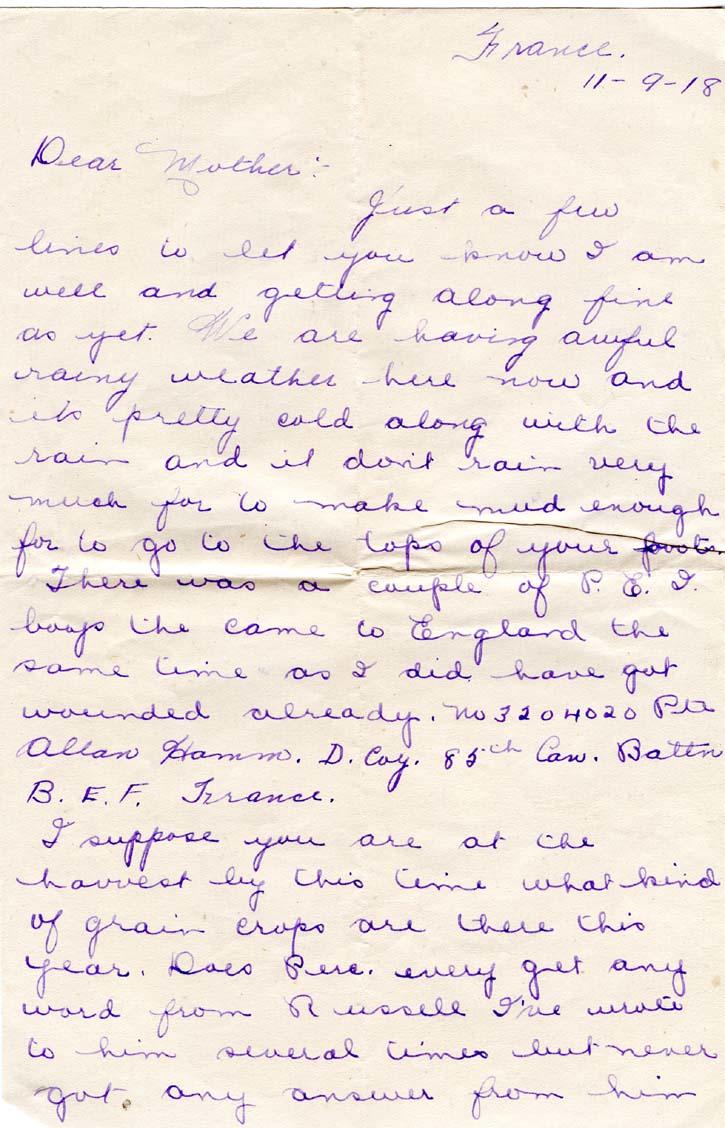 France.
11-9-18
Dear Mother:-
Just a few
lines to let you know I am
well and getting along fine
as yet. We are having awful
rainy weather here now and
its pretty cold along with the
rain and it dont rain very
much for to make mud enough
for to go to the tops of your
There was a couple of P. E. I.
boys the came to England the
same time as I did have got
wounded already. No 3204020 Pte
Allan Hamm. D. Coy. 85th Can. Battn
B. E. F. France.
I suppose you are at the
harvest by this time what kind
of grain crops are there this
year. Does Perc. every get any
word from Russell I've wrote
to him several times but never
got any answer from him